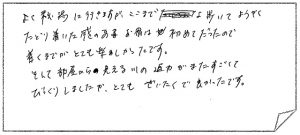 よく秋湯に行きますが、ここまで歩いてようやく
たどり着いた感のあるお宿は初めてだったので
着くまでがとても楽しかったです。
そして部屋から見える川の迫力がまたすごくて
びっくりしましたが、とてもぜいたくで良かったです。